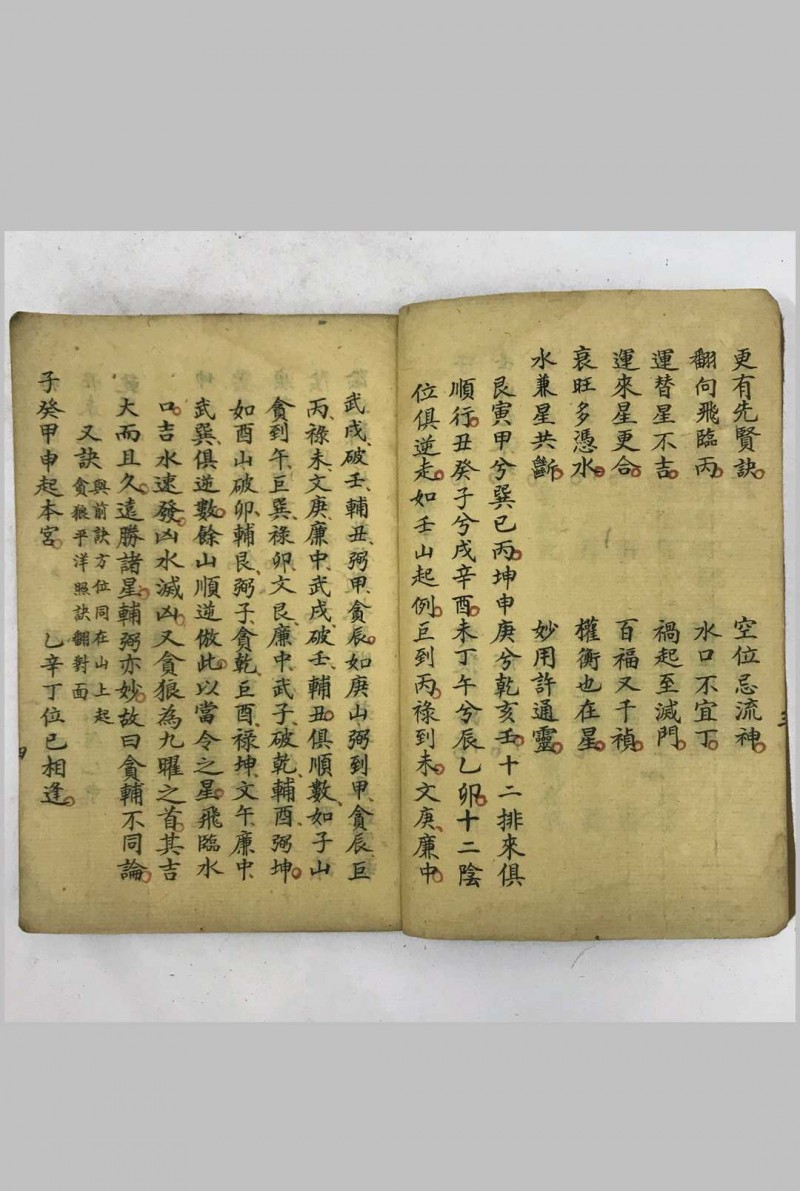 更有先賢訣　空位忌流神
翻向飛臨丙　水口不宜丁
運替星不吉　禍起至滅門
運來星更合　百福又千禎
衰旺多憑水　權衡也在星
水兼星共斷　妙用許通靈
艮寅甲兮巽巳丙坤申庚兮乾亥壬十二排來俱
順行丑癸子兮戌辛酉未丁午兮辰乙卯十二陰
位俱逆走如壬山起例巨到丙祿到未文庚廉中
武戌破壬輔丑弼甲貪辰如庚山弼到甲貪辰巨
丙祿未文庚廉中武戌破壬輔丑俱順數如子山
貪到午巨巽祿卯文艮廉中武子破乾輔酉弼坤
如酉山破卯輔艮弼子貪乾巨酉祿坤文午廉中
武巽俱逆數餘山順逆倣此以當令之星飛臨水
口吉水速發凶水滅凶又貪狼為九曜之首其吉
大而且久遠勝諸星輔弼亦妙故曰貪輔不同論
又訣　與前訣方位同在山上起
貪狼平洋照訣翻對面
子癸甲申起本宮　乙辛丁位巳相逢
四